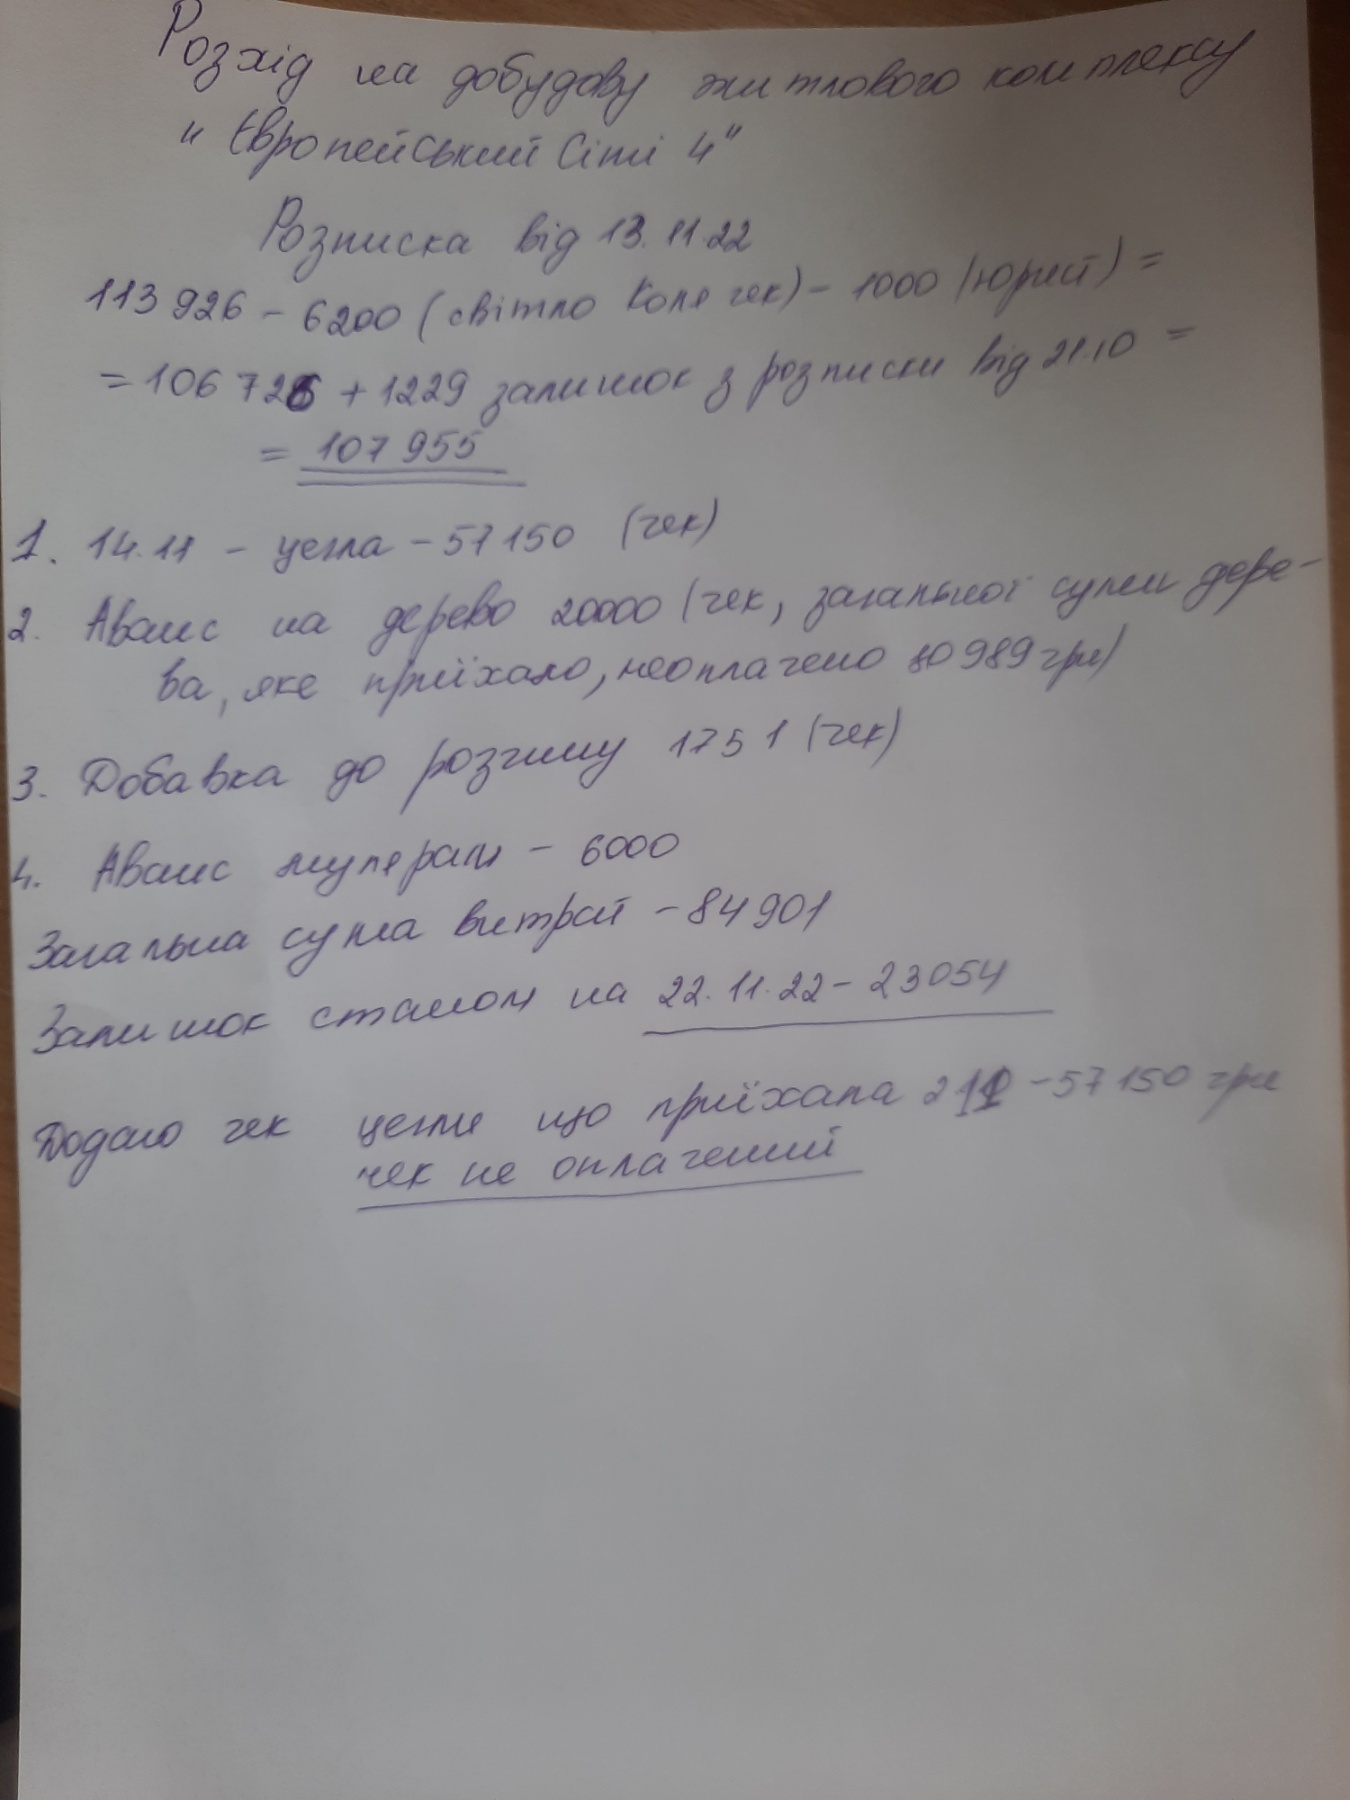 Розхід на добудову житлового комплексу
"Європейський Сіті 4"
Розписка від 13.11.22
113 926 - 6200 (світло Коля чек) - 1000 (юрист) =
= 106 726 + 1229 залишок з розписки від 21.10 =
= 107 955
1. 14.11 - цегла - 57 150 (чек)
2. Аванс на дерево 20000 (чек, загальної суми дере-
ва, яке приїхало, неоплачено 80 989 грн)
3. Добавка до розчину 1751 (чек)
4. Аванс мулярам - 6000
Загальна сума витрат - 84 901
Залишок станом на 22.11.22 - 23054
Додаю чек цегли що приїхала - 57 150 грн
чек не оплачений